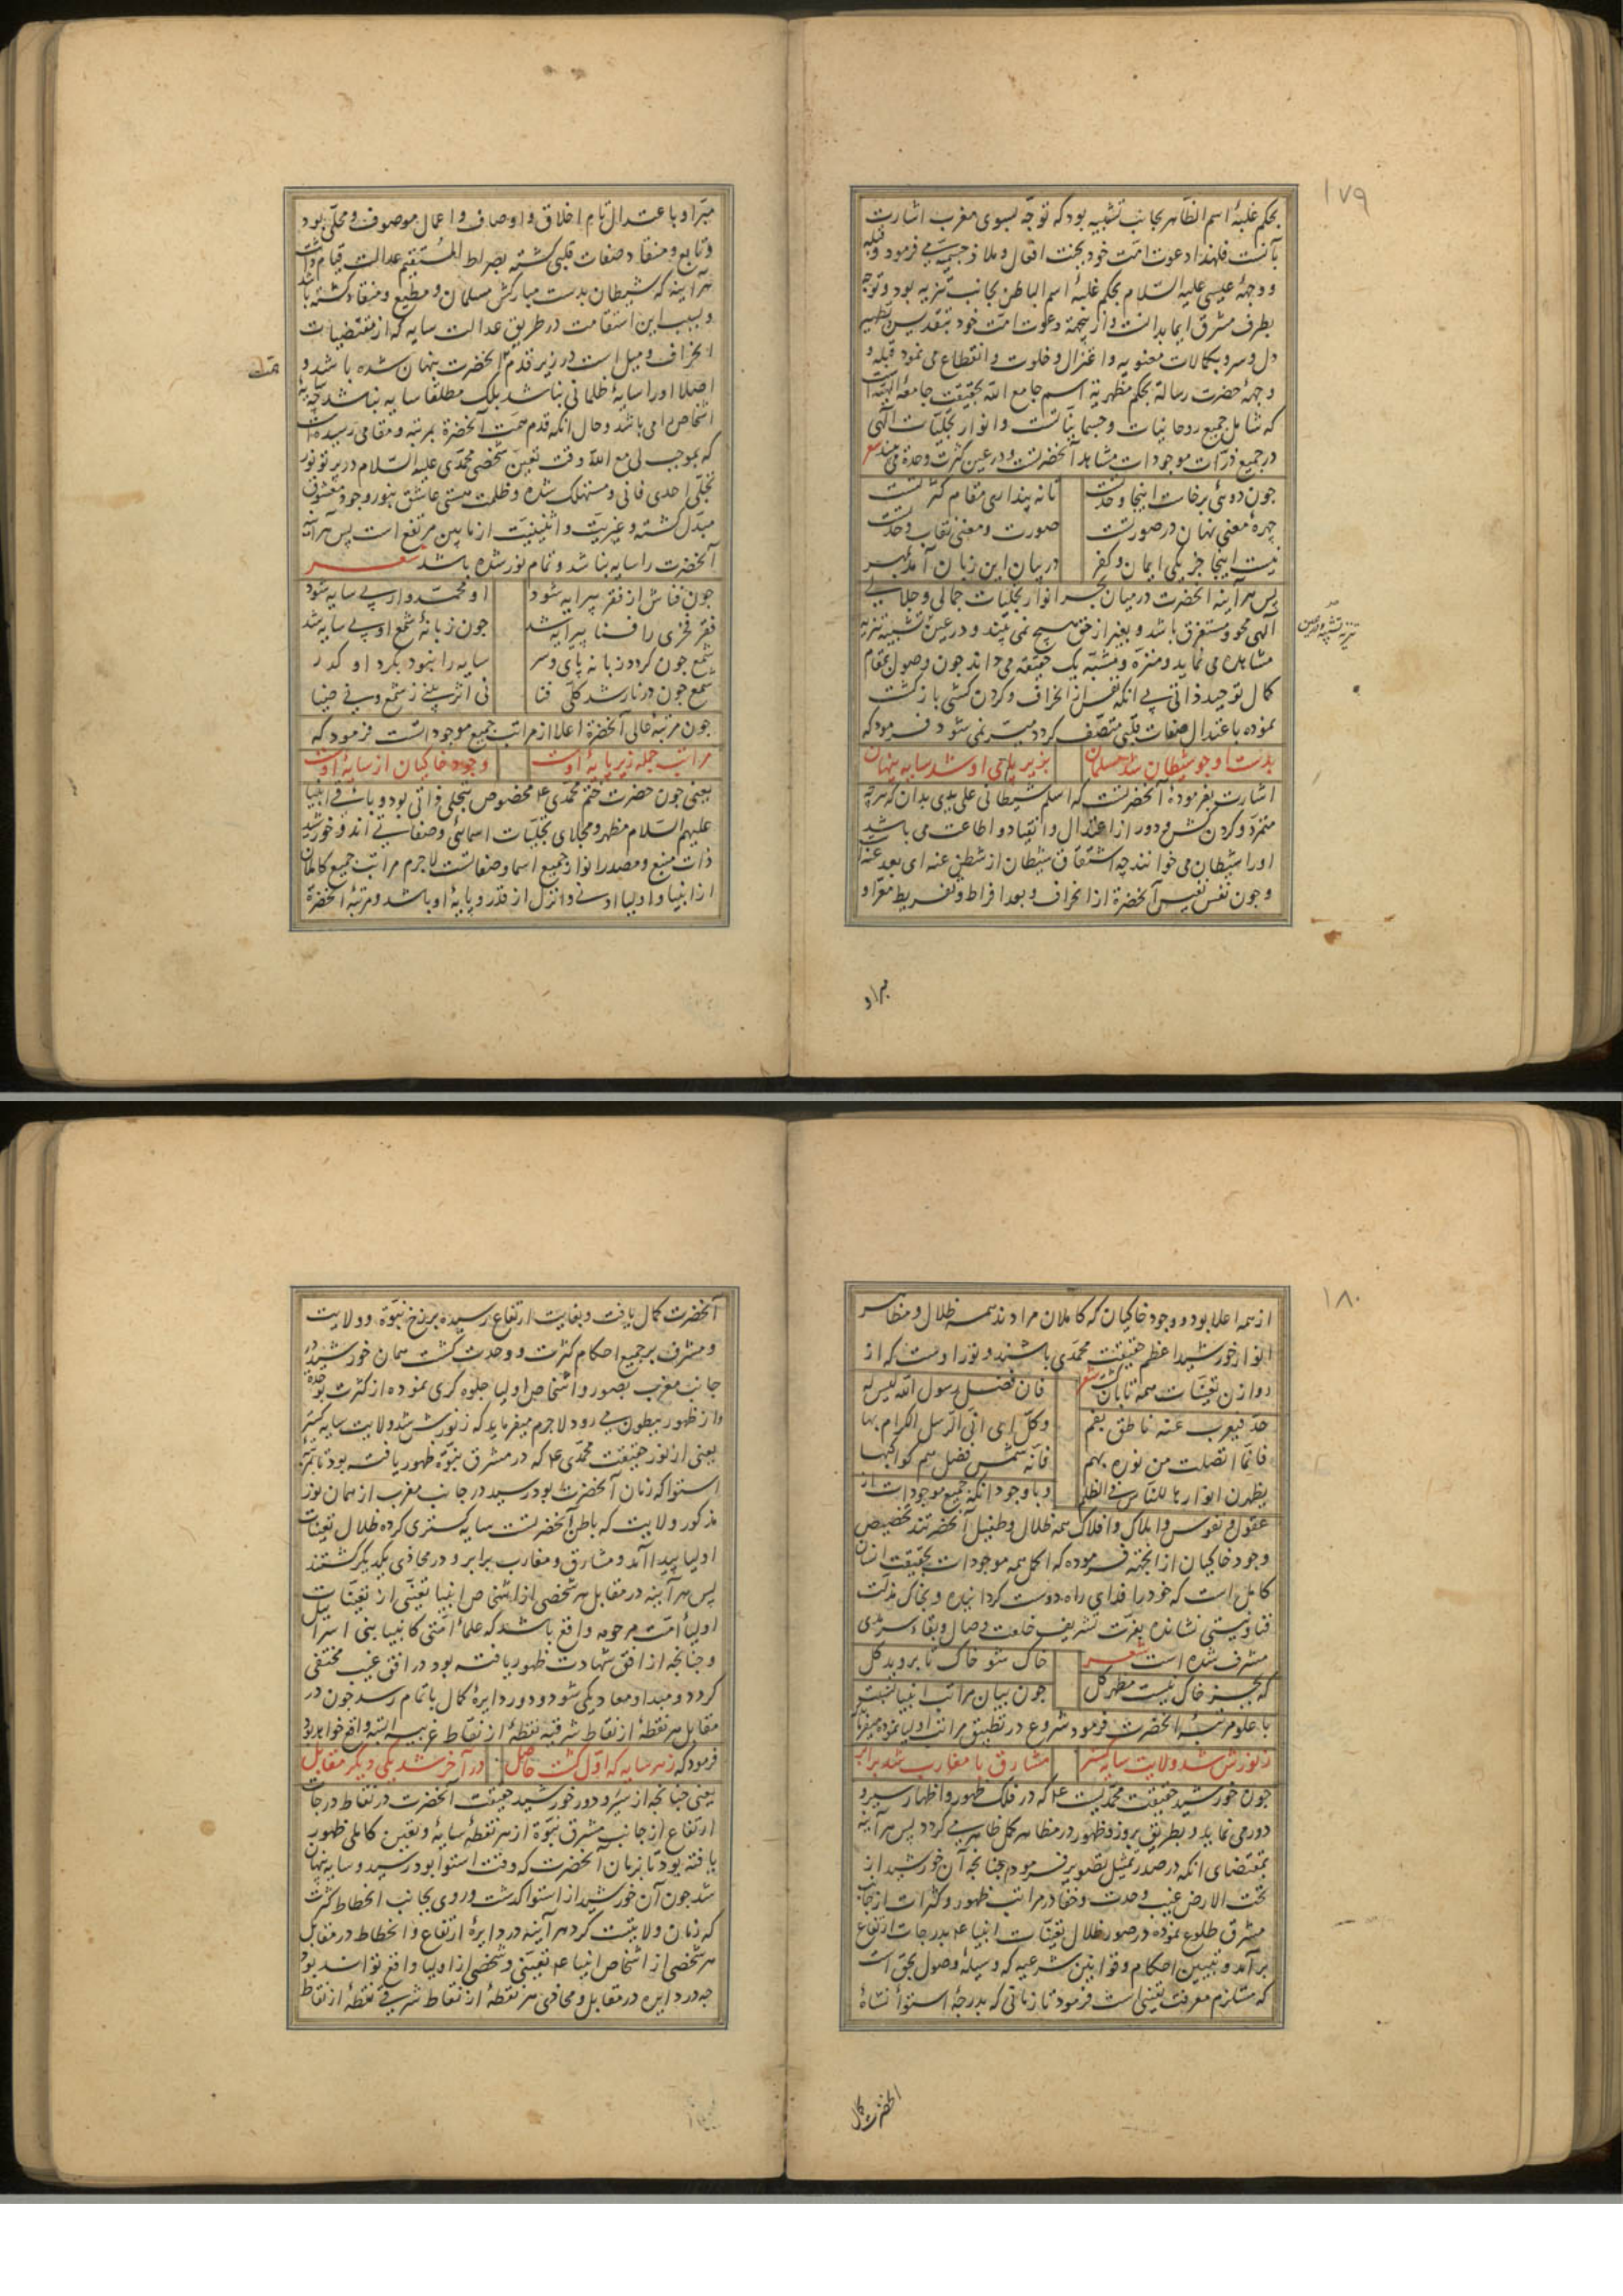 ۱۷۹
بحکم غلبهٔ اسم الظاهر بجانب تشبیه بود که توجه بسوی مغرب اشارت
بآنست فلهذا دعوت امت خود بجنت افعال و ملاذ جسمیه می فرمود و قبله
و وجههٔ عیسی علیه السلام بحکم غلبهٔ اسم الباطن بجانب تنزیه بود و توجه
بطرف مشرق ایما بدانست و از ینجهة دعوت امت خود بتقدیس و تطهیر
دل و سر و بکمالات معنویه و اعتزال و خلوت و انقطاع می نمود و قبله و
وجههٔ حضرت رسالة بحکم مظهریة اسم جامع الله بحقیقت جامعهٔ الهیه است
که شامل جمیع روحانیات و جسمانیاتست و انوار تجلیات الهی
در جمیع ذرات موجودات مشاهد آنحضرتست و در عین کثرت وحدة می بیند شعر
چون دوئی برخاست اینجا وحدتست تا نه پنداری مقام کثرتست
چهرهٔ معنی نهان در صورتست صورت و معنی نقاب وحدتست
نیست اینجا جز یکی ایمان و کفر در بیان این زبان آمد بهر
پس هر آینه آنحضرت در میان بحر انوار تجلیات جمالی و جلالی
الهی محو و مستغرق باشد و بغیر از حق هیچ نمی بیند و در عین تشبیه تنزیه
مشاهده می نماید و منزه و مشبه یک حقیقة می داند چون وصول بمقام
کمال توحید ذاتی بی انکه نفس از انحراف و کردن کشی بازگشت
نموده باعتدال صفات قلبی متصف گردد میسر نمی شود فرمود که
بدست او چو شیطان شد مسلمان بزیر پای او شد سایه پنهان
اشارت بفرمودهٔ آنحضرتست که اسلم شیطانی علی یدی بدان که هر چه
متمرد و کردن کش و دور از اعتدال و انقیاد و اطاعت می باشد
او را شیطان می خوانند چه اشتقاق شیطان از شطن عنه ای بعد عنه
و چون نفس نفیس آنحضرة از انحراف و بعد افراط و تفریط معرا و
مبرا و
مبرا و باعتدال تام اخلاق و اوصاف و اعمال موصوف و محلی بود
و تابع و منقاد صفات قلبی کشته بصراط المستقیم عدالت قیام داشت
هر آینه که شیطان بدست مبارکش مسلمان و مطیع و منقاد کشته باشد
و بسبب این استقامت در طریق عدالت سایه که از مقتضیات
انحراف و میل است در زیر قدم آنحضرت پنهان شده باشد و
اصلا او را سایهٔ ظلمانی نباشد بلک مطلقا سایه نباشد چه سایه
اشخاص را می باشد و حال انکه قدم همت آنحضرة بمرتبه و مقامی رسیده است
که بموجب لی مع الله وقت تعین شخصی محمدی علیه السلام در پرتو نور
تجلی احدی فانی و مستهلک شده و ظلمت هستی عاشق بنور وجود معشوق
مبدل کشته و غیریت و اثنینیت از ما بین مرتفع است پس هر آینه
آنحضرت را سایه نباشد و تمام نور شده باشد شعر
چون فناش از فقر پیرایه شود او محمدوار بی سایه شود
فقر فخری را فنا پیرایه شد چون زبانهٔ شمع او بی سایه شد
شمع چون کردد زبانه پای و سر سایه را نبود بگرد او گذر
شمع چون در نار شد کلی فنا نی اثر بینی ز شمع و نی ضیا
چون مرتبهٔ عالی آنحضرة اعلا از مراتب جمیع موجوداتست فرمود که
مراتب جمله زیر پایهٔ اوست وجود خاکیان از سایهٔ اوست
یعنی چون حضرت ختم محمدی ع م مخصوص بتجلی ذاتی بود و باقی انبیا
علیهم السلام مظهر و مجلای تجلیات اسمائی و صفاتی اند و خورشید
ذات منبع و مصدر انوار جمیع اسما و صفاتست لاجرم مراتب جمیع کاملان
از انبیا و اولیا ادنی و انزل از قدر و پایهٔ او باشد و مرتبهٔ آنحضرة
۱۸۰
از همه اعلا بود و وجود خاکیان که کاملان مرادند همه ظلال و مظاهر
انوار خورشید اعظم حقیقت محمدی باشند و نور اوست که از
روازن تعینات همه تابان کشت شعر فان فضل رسول الله لیس له
حد فیعرب عنه ناطق بفم وکل ای اتی الرسل الکرام بها
فانما اتصلت من نوره بهم فانه شمس فضل هم کواکبها
یظهرن انوارها للناس فی الظلم و با وجود انکه جمیع موجودات از
عقول و نفوس و املاک و افلاک همه ظلال و طفیل آنحضرتند تخصیص
وجود خاکیان از انجهة فرموده که اکمل همه موجودات بحقیقت انسان
کامل است که خود را فدای راه دوست کردانیده و بخاک مذلت
فنا و نیستی نشانده بعزت تشریف خلعت وصال و بقاء سرمدی
مشرف شده است شعر خاک شو خاک تا بروید کل
که بجز خاک نیست مظهر کل چون بیان مراتب انبیا نسبت
با علو مرتبهٔ آنحضرت فرمود شروع در تطبیق مراتب اولیا نموده میفرماید
ز نورش شد ولایت سایه کستر مشارق با مغارب شد برابر
چون خورشید حقیقت محمدیست ع م که در فلک ظهور و اظهار سیر و
دور می نماید و بطریق بروز و ظهور در مظاهر کمل ظاهر می کردد پس هر آینه
بمقتضای انکه در صدر تمثیل تصویر فرمودیم چنانچه آن خورشید از
تحت الارض غیب وحدت و خفا در مراتب ظهور و کثرات از جانب
مشرق طلوع نموده در صور ظلال تعینات انبیا ع م بدرجات ارتفاع
برآمد و تبیین احکام و قوانین شرعیه که وسیله وصول بحق است
که مستلزم معرفت یقینی است فرمود تا زمانی که بدرجهٔ استواء نشاة
آنحضرت کمال
آنحضرت کمال یافت و بغایت ارتفاع رسیده برزخ نبوة و ولایت
و مشرف بر جمیع احکام کثرت و وحدت کشت همان خورشید در
جانب مغرب بصور و اشخاص اولیا جلوه کری نموده از کثرت بوحدة
و از ظهور ببطون می رود لاجرم میفرماید که ز نورش شد ولایت سایه کستر
یعنی از نور حقیقت محمدی ع م که در مشرق نبوة ظهور یافته بود تا بمرتبهٔ
استوا که زمان آنحضرت بود رسید در جانب مغرب از همان نور
مذکور ولایت که باطن آنحضرتست سایه کستری کرده ظلال تعینات
اولیا پیدا آمد و مشارق و مغارب برابر و در محاذی یکدیگر کشتند
پس هر آینه در مقابل هر شخصی از اشخاص انبیا تعینی از تعینات
اولیاء امت مرحومه واقع باشد که علماء امتی کانبیا بنی اسرائیل
و چنانچه از افق شهادت ظهور یافته بود در افق غیب مختفی
کردد و مبدا و معاد یکی شود و دور دایرهٔ کمال باتمام رسد چون در
مقابل هر نقطهٔ از نقاط شرقیه نقطهٔ از نقاط غربیه البته واقع خواهد بود
فرمود که ز هر سایه که اول کشت حاصل در آخر شد یکی دیگر مقابل
یعنی چنانچه از سیر و دور خورشید حقیقت آنحضرت در نقاط درجات
ارتفاع از جانب مشرق نبوة از هر نقطهٔ سایهٔ و تعین کاملی ظهور
یافته بود تا بزمان آنحضرت که وقت استوا بود رسید و سایه پنهان
شد چون آن خورشید از استوا گذشت و روی بجانب انحطاط کثرت
که زمان ولایتست کرد هر آینه در دایرهٔ ارتفاع و انحطاط در مقابل
هر شخصی از اشخاص انبیا ع م تعینی و شخصی از اولیا واقع تواند بود
چه در دایره در مقابل و محاذی هر نقطهٔ از نقاط شرقی نقطهٔ از نقاط